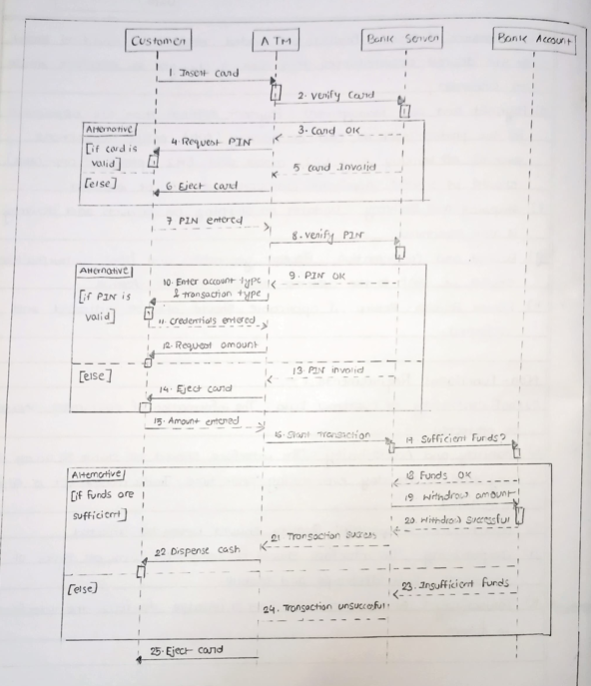 Customer
ATM
Bank Server
Bank Account
1 Insert card
2. verify Card
Alternative
3. Card OK
4. Request PIN
[if card is
valid]
5 card Invalid
[else]
6 Eject card
7 PIN entered
8. verify PIN
Alternative
9. PIN OK
10. Enter account type
& transaction type
[if PIN is
valid]
11. Credentials entered
12. Request amount
13 PIN invalid
[else]
14. Eject card
15. Amount entered
16. Start Transaction
17 Sufficient Funds?
Alternative
18 Funds OK
[if Funds are
sufficient]
19 Withdraw amount
20. Withdraw Successful
21 Transaction Success
22 Dispense cash
[else]
23. Insufficient Funds
24. Transaction unsuccesful.
25. Eject card